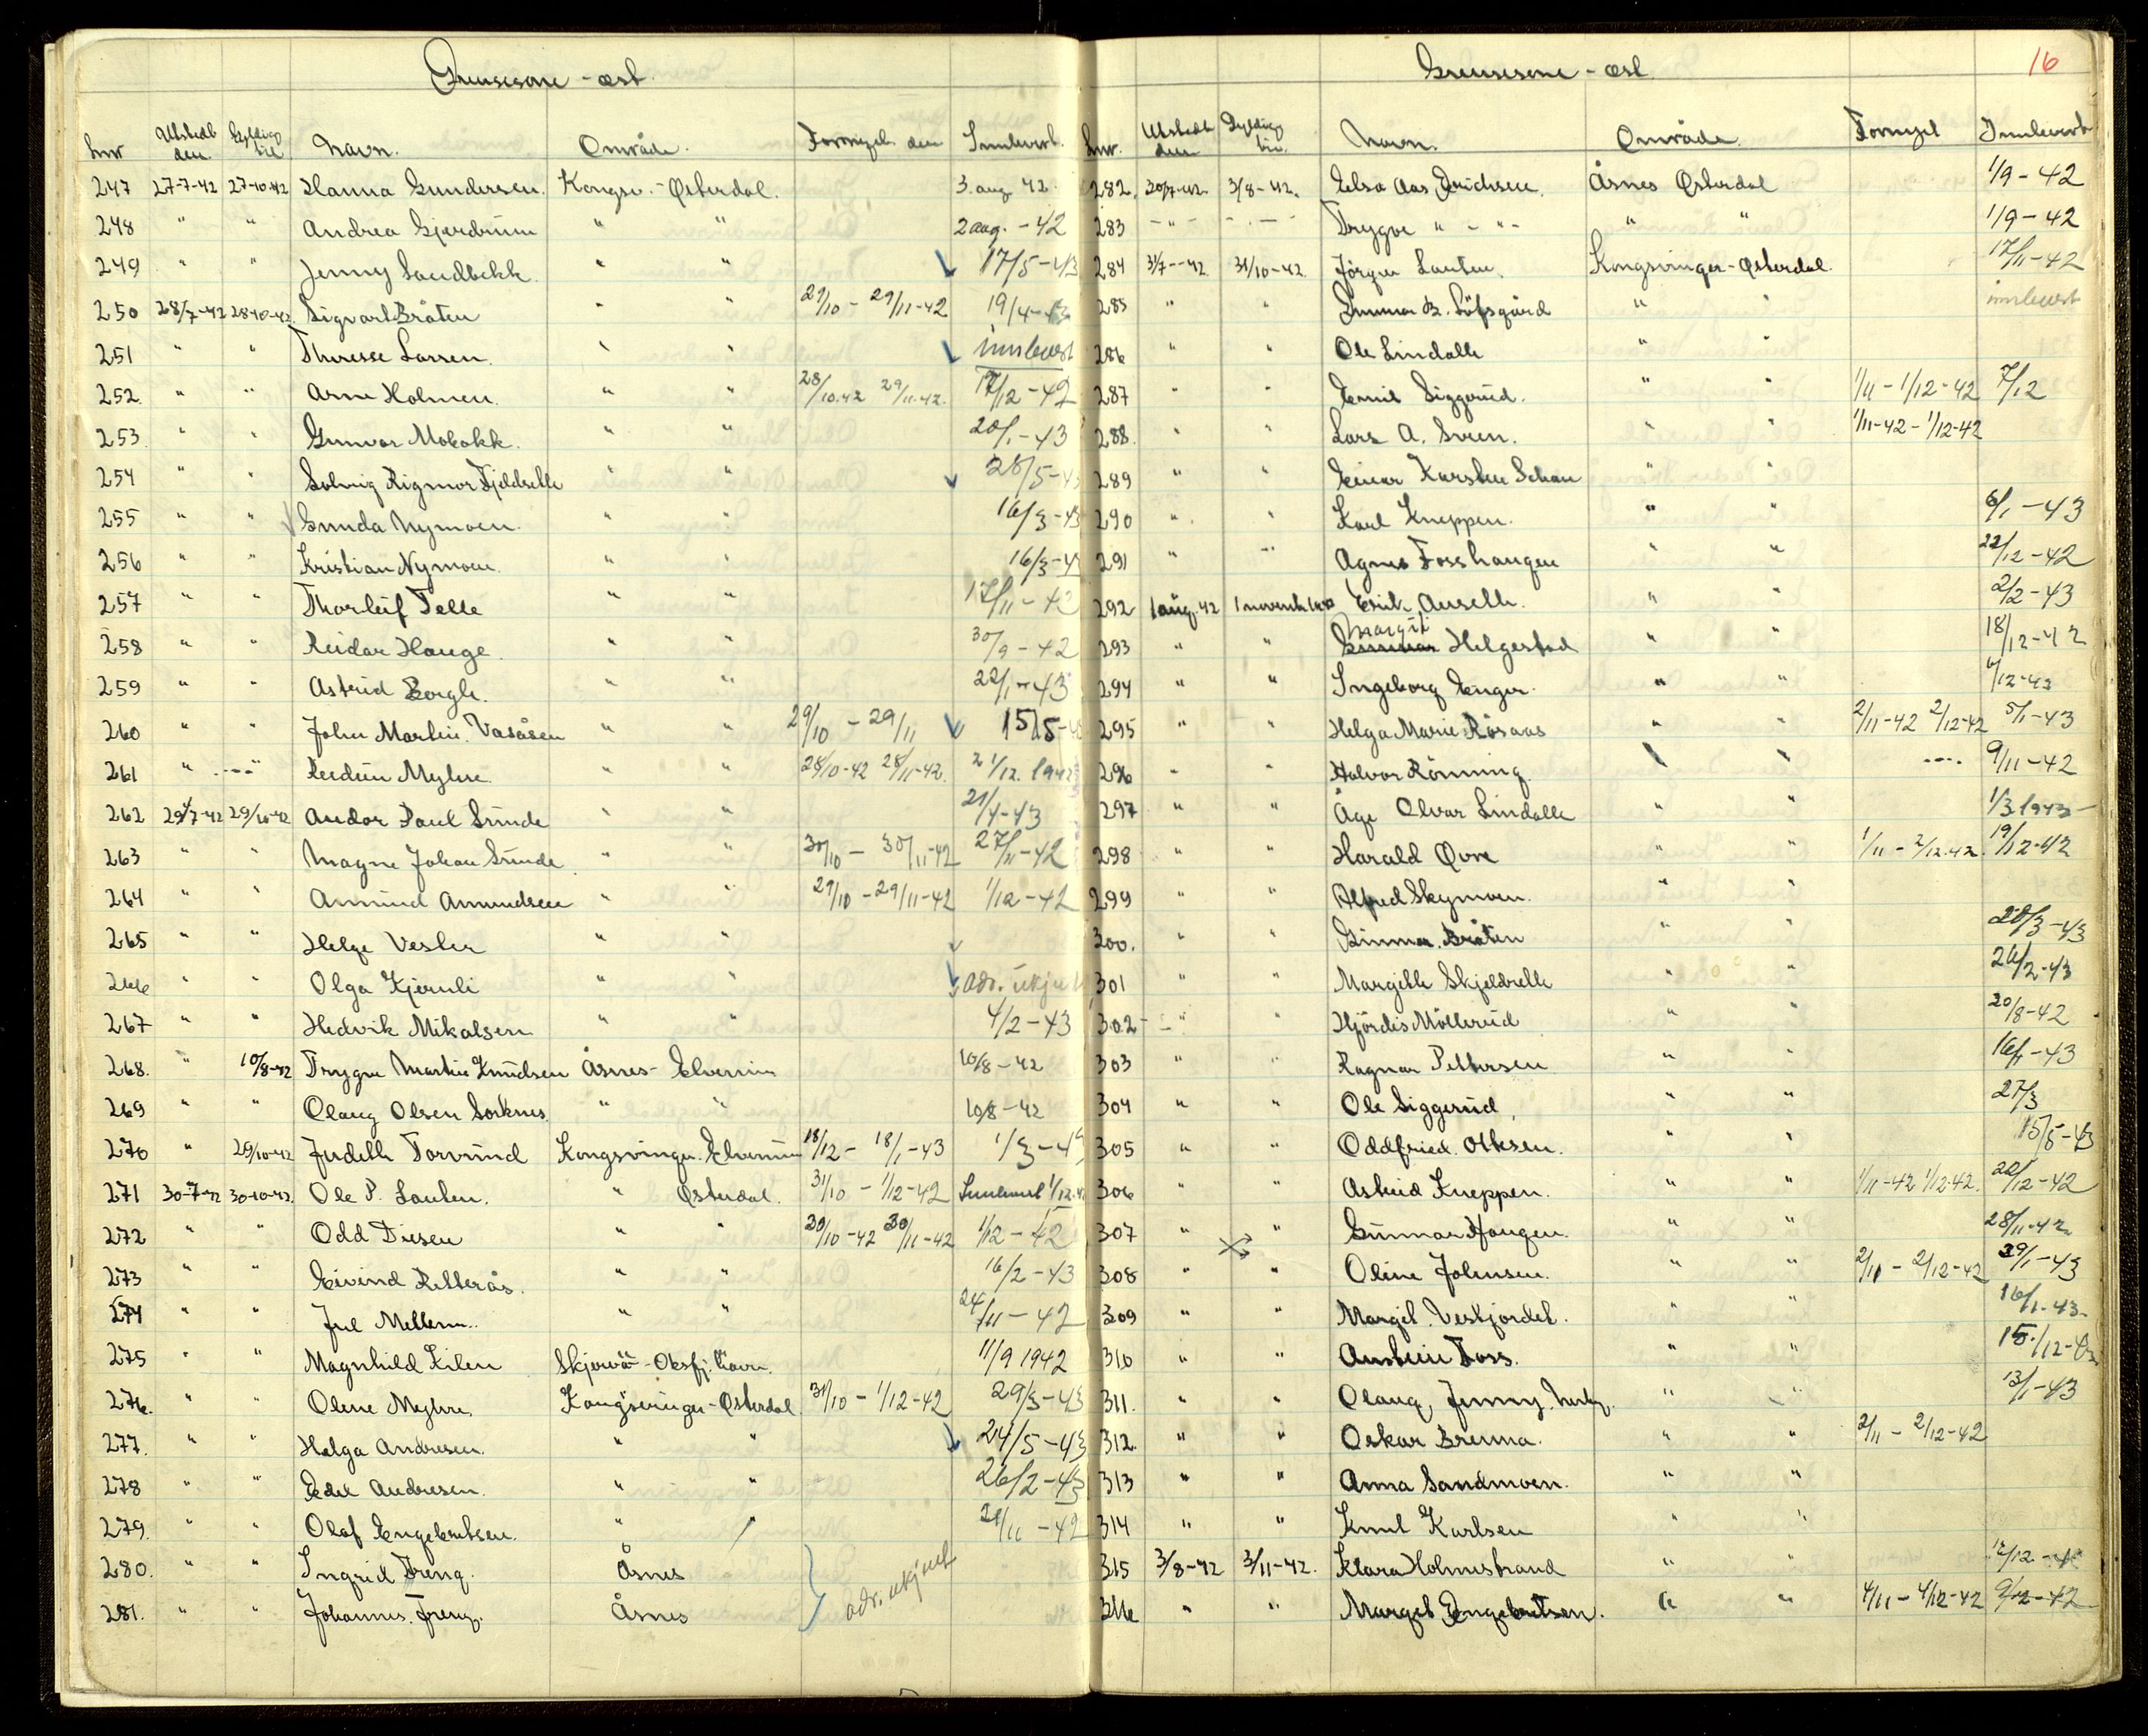 Grensesone - øst.
Lnr Utstedt den Gyldig til Navn. Område. Fornyet den Innlevert.
247 27-7-42 27-10-42 Hanna Gundersen. Kongsv. - Østerdal. 3. aug 42.
248 " " Andrea Gjerdrum " " 2 aug. - 42
249 " " Jenny Sandbekk. " " 17/5 - 43
250 28/7-42 28-10-42 Sigvart Bråten " " 29/10 - 29/11-42 19/4-43
251 " " Therese Larsen. " " innlevert
252 " " Arne Holmen. " " 28/10-42 29/11-42. 17/12 - 42
253. " " Gunvor Mobakk. " " 20/1 - 43
254 " " Solveig Rigmor Fjeldsette " " 28/5-43
255 " " Gunda Nymoen. " " 16/3 - 43
256 " " Kristian Nymoen. " " 16/3-43
257 " " Thorleif Telle " " 17/11 - 42
258 " " Reidar Hauge. " " 30/9 - 42
259 " " Astrid Borgli. " " 22/1 - 43
260 " " John Martin Vasåsen " " 29/10 - 29/11 15/5-43
261 " " Reidun Myhre. " " 28/10-42 28/11-42. 21/12. 1942
262 29/7-42 29/10-42 Andor Paul Sunde " " 21/4-43
263 " " Magne Johan Sunde " " 30/10 - 30/11-42 27/11-42
264 " " Amund Amundsen " " 29/10 - 29/11-42 1/12 - 42
265 " " Helge Vesler " "
266 " " Olga Kjernli " " adr. ukjent
267 " " Hedvik Mikalsen " " 4/2 - 43
268. " 10/8-42 Trygve Martin Knudsen Åsnes - Elverum 10/8 - 42
269 " " Olaug Olsen Sorknes. " " 10/8 - 42
270 " 29/10-42 Judith Torvund Kongsvinger. Elverum 18/12 - 18/1-43 1/3 - 43
271 30-7-42 30-10-42. Ole P. Lauten. " Østerdal. 31/10 - 1/12-42 Innlevert 1/12-42
272 " " Odd Diesen " " 30/10-42 30/11-42 1/12 - 42
273 " " Eivind Retterås. " " 16/2 - 43
274 " " Jul Mellem. " " 24/11 - 42
275 " " Magnhild Kilen Skjervøy - Oksfj. havn. 11/9 1942
276. " " Olene Myhre. Kongsvinger - Østerdal. 31/10 - 1/12-42 29/3-43
277. " " Helga Andresen. " " 24/5 - 43
278 " " Edel Andresen. " " 26/2-43
279. " " Olaf Engebretsen. " " 21/11 - 42
280. " " Ingrid Treng. Åsnes adr. ukjent
281. " " Johannes Treng. Åsnes
16
Grensesone - øst.
Lnr. Utstedt den Gyldig til. Navn. Område. Fornyet Innlevert
282. 30/7-42. 3/8-42. Elsa Aas Erichsen. Åsnes Østerdal 1/9 - 42
283 - " - - " - Trygve " - " - " " 1/9 - 42
284 31/7-42. 31/10-42. Jørgen Lauten. Kongsvinger - Østerdal. 17/11-42
285 " " Gunnar B. Löfsgård " " innlevert
286 " " Ole Lindalle " "
287 " " Emil Siggerud. " " 1/11 - 1/12-42 7/12
288. " " Lars A. Sveen. " " 1/11-42 - 1/12-42
289 " " Einar Karsten Schau " "
290 " " Karl Kneppen. " " 6/1 - 43
291 " " Agnes Fosshaugen " " 22/12-42
292 1 aug. 42 1 november Erik Auselle. " " 2/2-43
293 " " Margit Helgestad " " 18/12-42
294 " " Ingeborg Enger. " " 6/12-42
295 " " Helga Marie Røsaas " " 2/11-42 2/12-42 5/1-43
296 " " Halvor Rönning. " " " 9/11-42
297 " " Åge Olvar Lindalle " " 1/3 1943
298 " " Harald Ovre " " 1/11 - 2/12-42. 19/12-42
299 " " Alfred Skymoen. " "
300. " " Gunnar. Bråten " " 20/3-43
301 " " Margithe Skjeldrelle " " 26/2-43
302 " " Hjördis Möllerud " " 20/8-42
303 " " Ragnar Pettersen " " 16/1-43
304 " " Ole Siggerud. " " 27/3
305 " " Oddfried. Olksen. " " 15/5-43
306 " " Astrid Kneppen. " " 1/11-42 1/12-42. 22/12-42
307 " " Gunnar Haugen. " " 28/11-42
308 " " Oline Johnsen. " " 2/11 - 2/12-42 29/1-43
309 " " Margit. Veskjordet. " " 16/1-43
310 " " Anstein Foss. " " 15/12-42
311. " " Olaug, Jenny. " " 13/1-43
312. " " Oskar Brenna. " " 2/11 - 2/12-42
313 " " Anna Sandmoen. " "
314 " " Knut Karlsen " "
315 3/8-42 3/11-42. Klara Holmestrand " " 12/12-42
316 " " Margit Engebretsen. " " 4/11 - 4/12-42 9/12-42